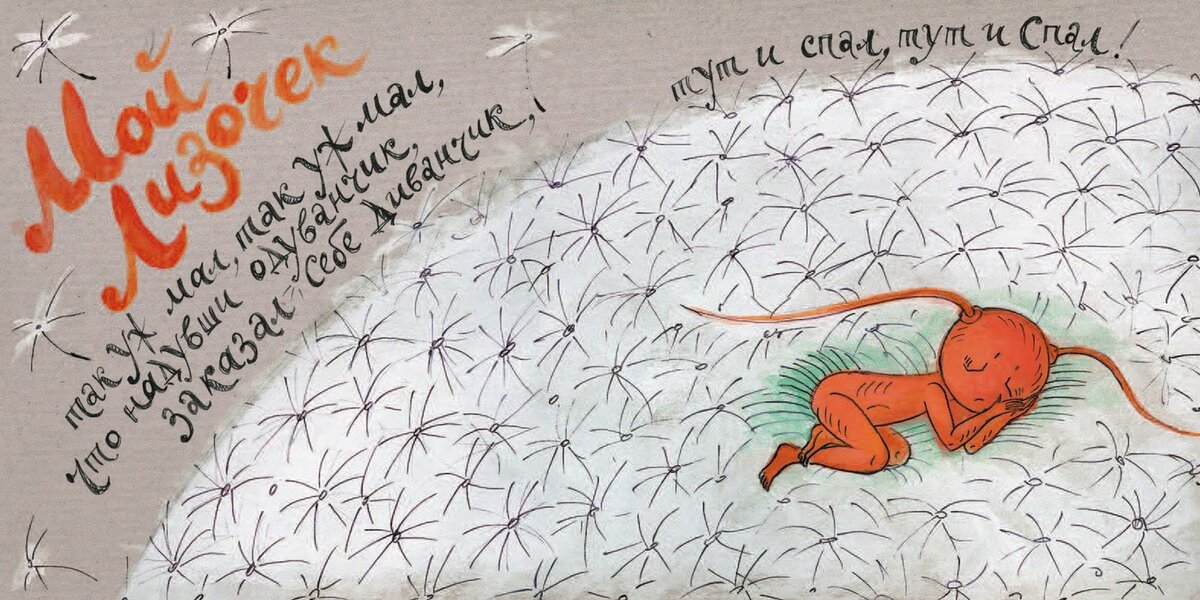 Мой
Лизочек
так уж мал, так уж мал,
что надувши одуванчик,
заказал себе диванчик,!
тут и спал, тут и спал!